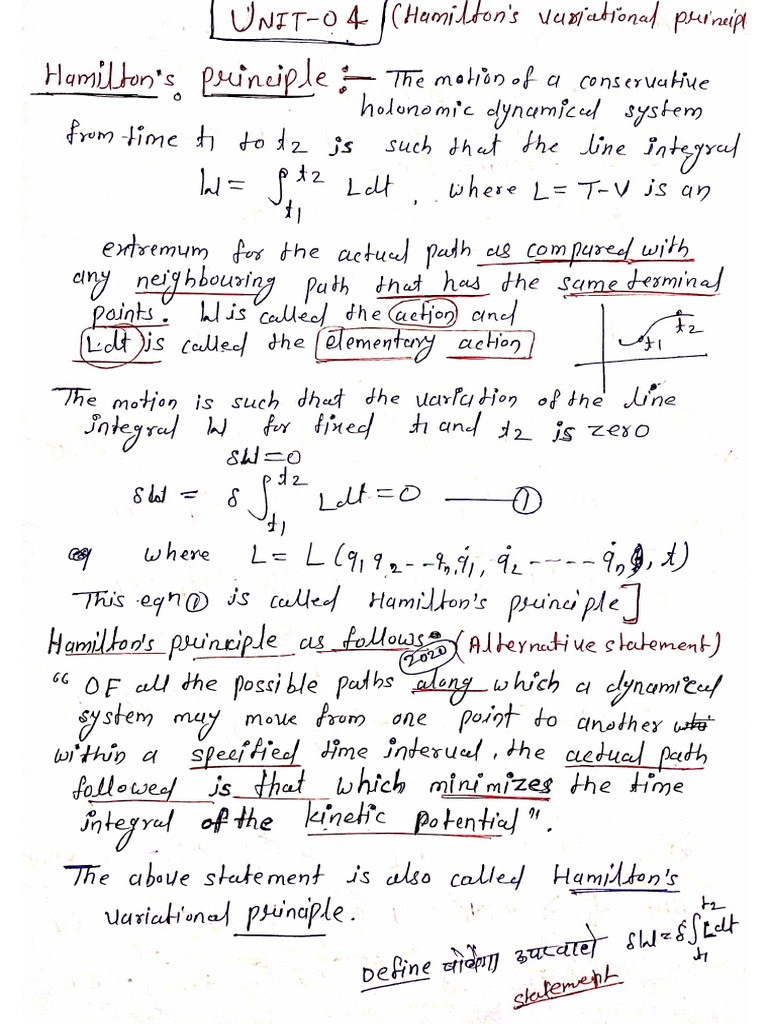 UNIT-04 (Hamilton's variational princip
Hamilton's principle :- The motion of a conservative
holonomic dynamical system
from time t1 to t2 is such that the line integral
W = ∫_{t1}^{t2} Ldt, where L = T-V is an
extremum for the actual path as compared with
any neighbouring path that has the same terminal
points. W is called the action and
Ldt is called the elementary action
t1 t2
The motion is such that the variation of the line
integral W for fixed t1 and t2 is zero
δW=0
δW = δ ∫_{t1}^{t2} Ldt = 0 —— ①
where L = L (q1 q2 - - qn, q̇1, q̇2 - - - - q̇n, t)
This eqn ① is called Hamilton's principle]
Hamilton's principle as follows (Alternative statement)
2020
“ OF all the possible paths along which a dynamical
system may move from one point to another
within a specified time interval, the actual path
followed is that which minimizes the time
integral of the kinetic potential”.
The above statement is also called Hamilton's
variational principle.
Define उपरवाले δW = δ∫_{t1}^{t2} Ldt
statement